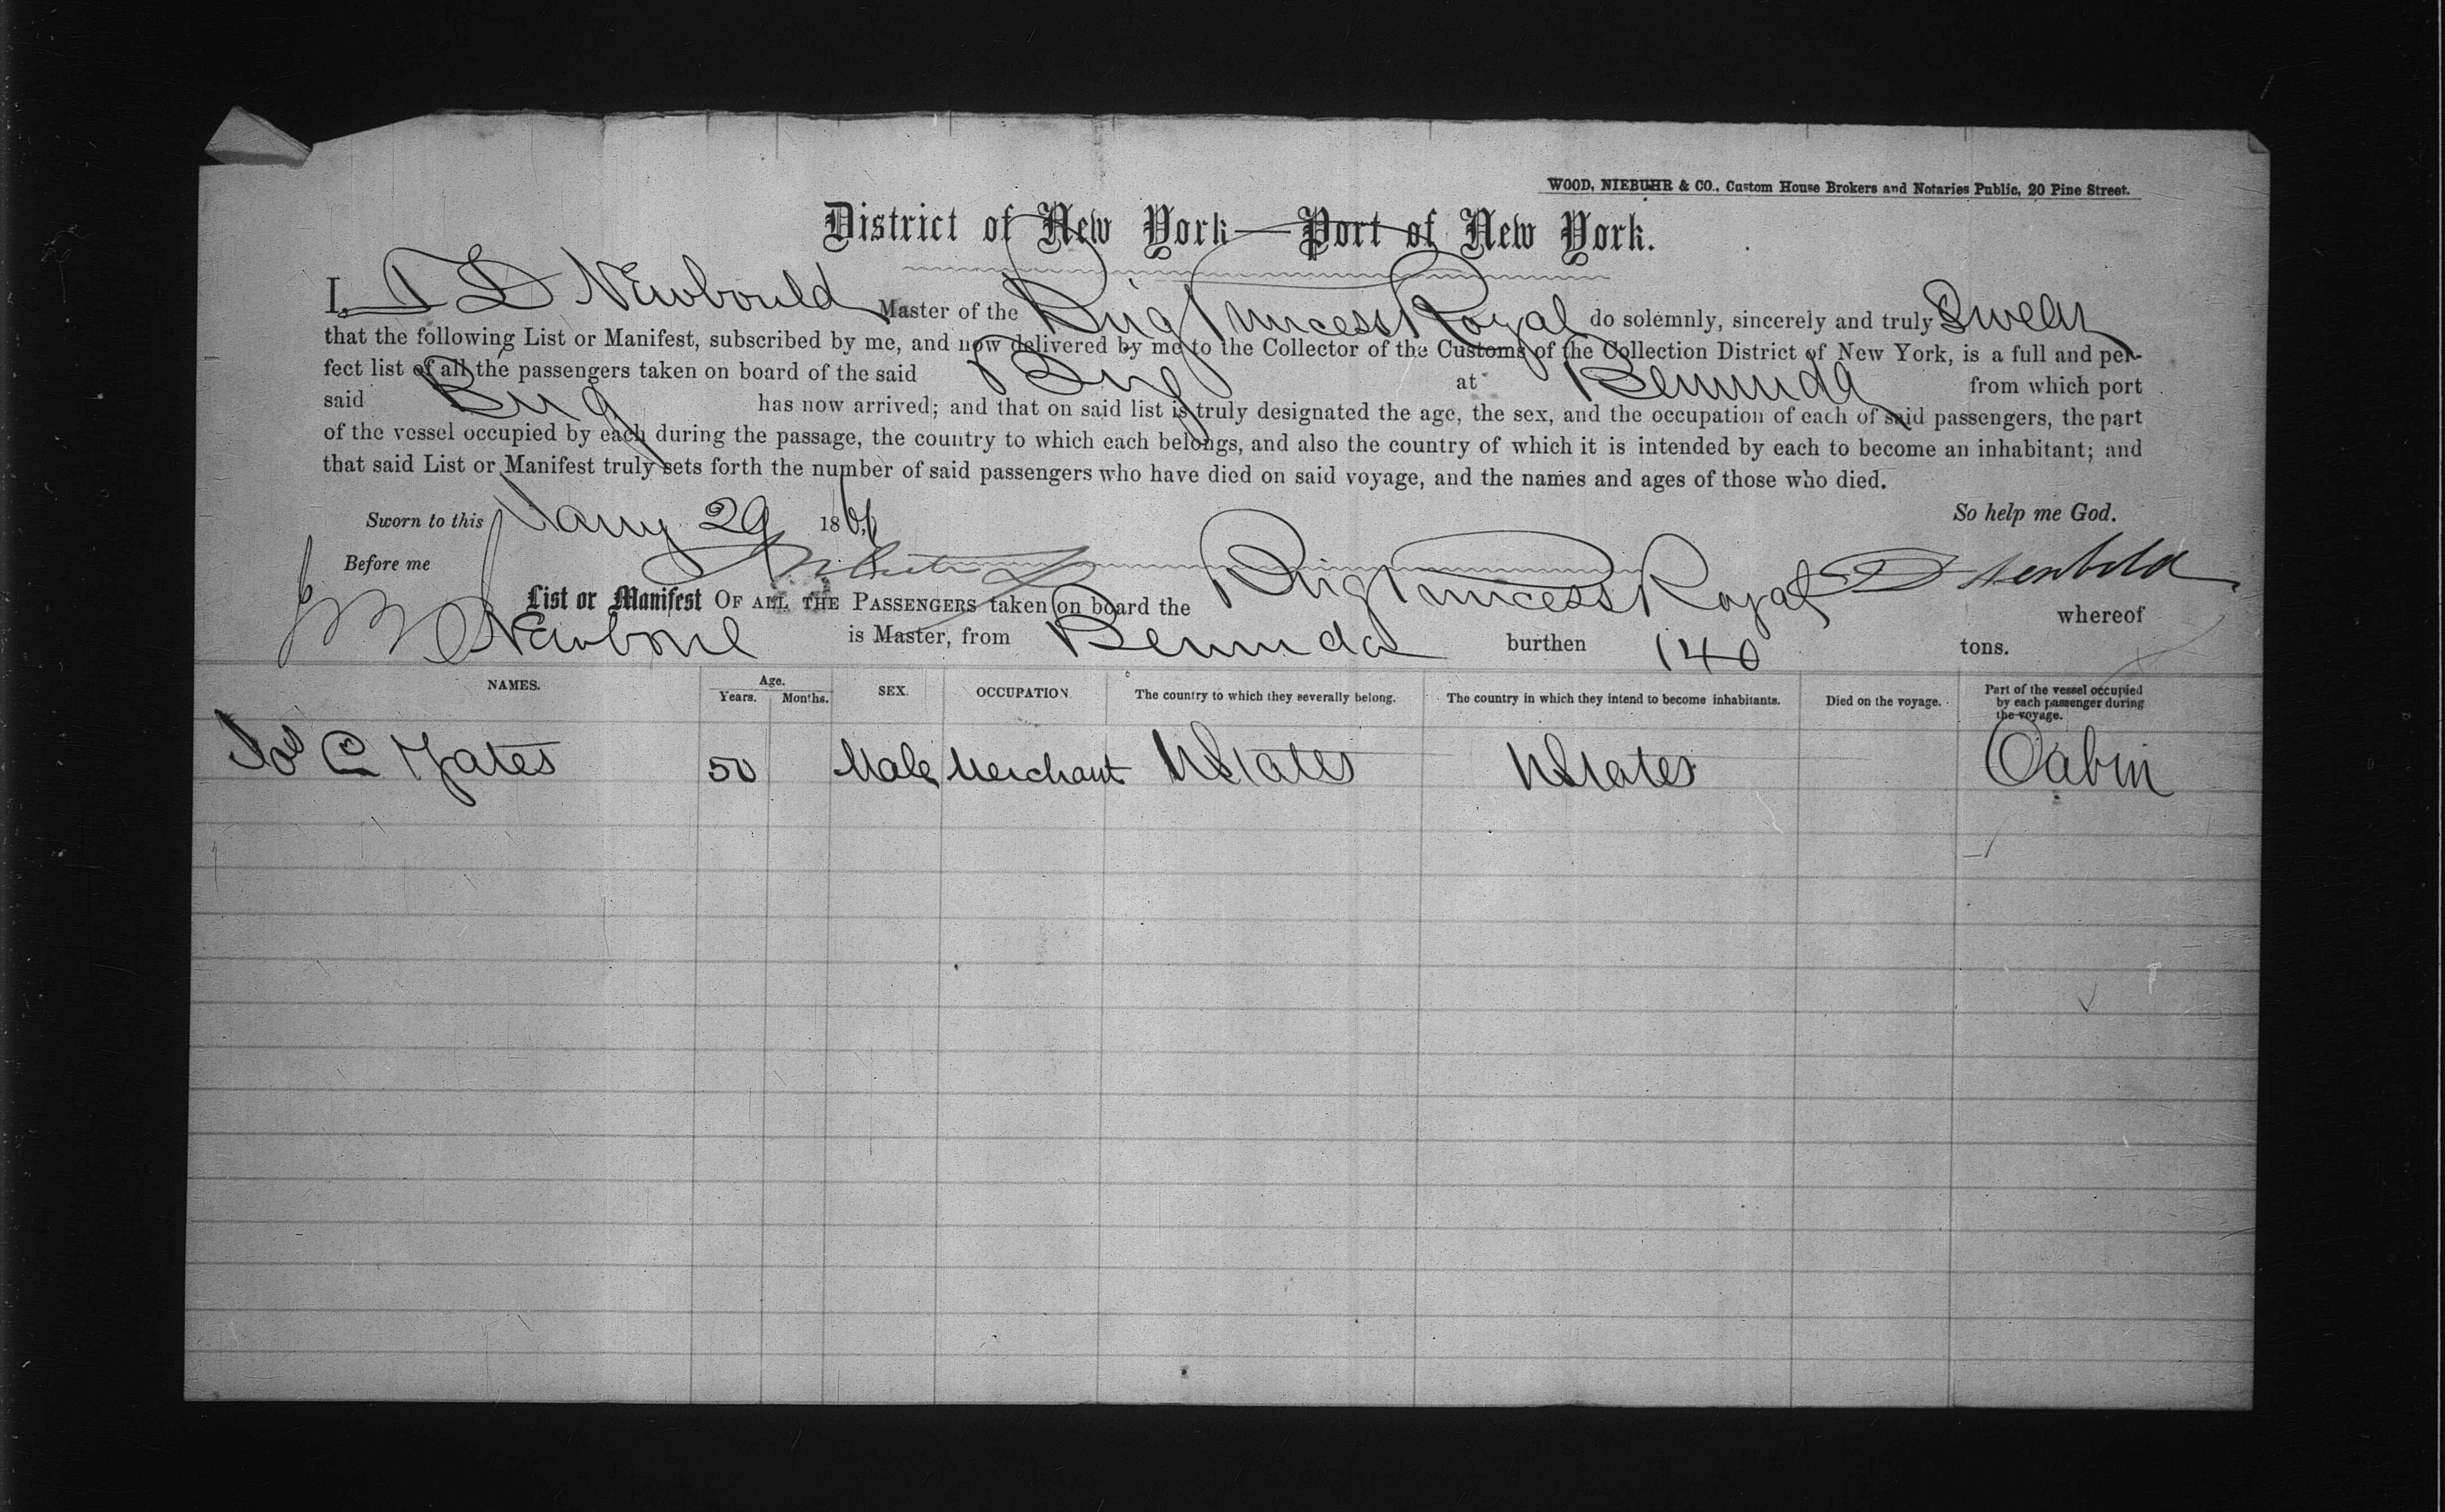 WOOD, NIEBUHR & CO., Custom House Brokers and Notaries Public, 20 Pine Street.
District of New York—Port of New York.
I, T D Newbould Master of the Brig Princess Royal do solemnly, sincerely and truly Swear
that the following List or Manifest, subscribed by me, and now delivered by me to the Collector of the Customs of the Collection District of New York, is a full and per-
fect list of all the passengers taken on board of the said Brig at Bermuda from which port
said Brig has now arrived; and that on said list is truly designated the age, the sex, and the occupation of each of said passengers, the part
of the vessel occupied by each during the passage, the country to which each belongs, and also the country of which it is intended by each to become an inhabitant; and
that said List or Manifest truly sets forth the number of said passengers who have died on said voyage, and the names and ages of those who died.
Sworn to this Jany 29 186 So help me God.
Before me
List or Manifest OF ALL THE PASSENGERS taken on board the Brig Princess Royal whereof
is Master, from Bermuda burthen 140 tons.
NAMES. Age. Years. Months. SEX. OCCUPATION. The country to which they severally belong. The country in which they intend to become inhabitants. Died on the voyage. Part of the vessel occupied by each passenger during the voyage.
Jos C Yates 50 Male Merchant UStates UStates Cabin